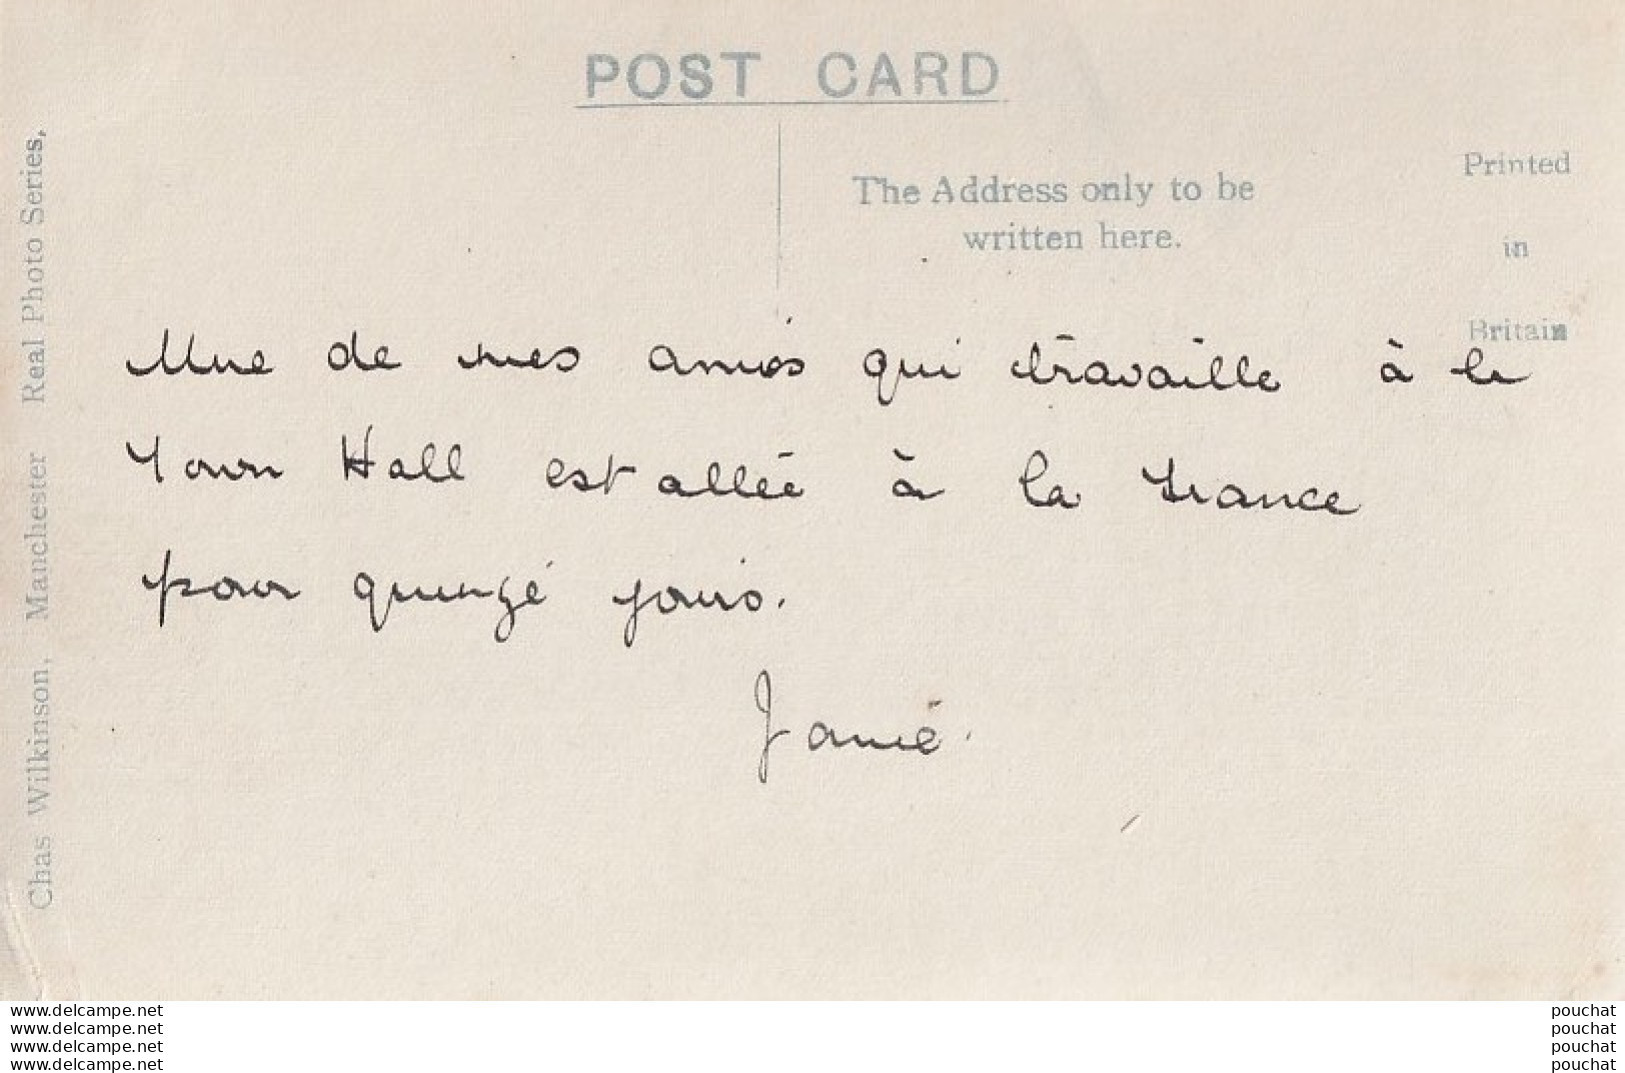 POST CARD
The Address only to be
written here.
Printed
in
Britain
Chas Wilkinson, Manchester Real Photo Series,
Une de mes amies qui travaille à le
Town Hall est allée à la France
pour quinze jours.
Janie.
www.delcampe.net
www.delcampe.net
www.delcampe.net
www.delcampe.net
pouchat
pouchat
pouchat
pouchat